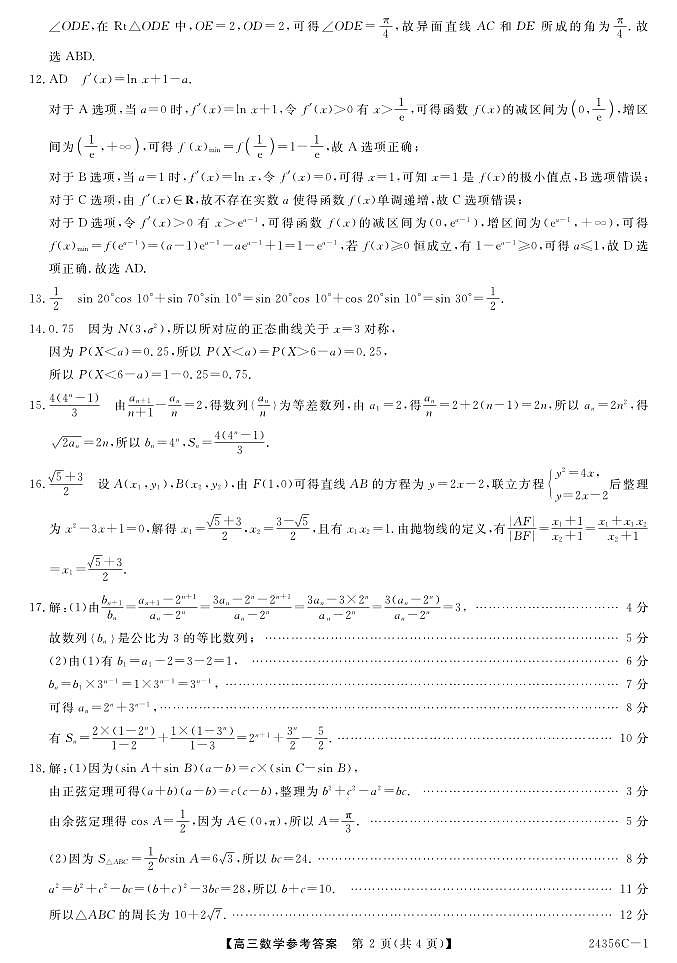 ∠ODE,在 Rt△ODE 中,OE=2,OD=2,可得∠ODE=π/4,故异面直线 AC 和 DE 所成的角为π/4.故
选 ABD.
12. AD f′(x)=ln x+1-a.
对于 A 选项,当 a=0 时,f′(x)=ln x+1,令 f′(x)>0 有 x>1/e,可得函数 f(x)的减区间为(0,1/e),增区
间为(1/e,+∞),可得 f(x)min=f(1/e)=1-1/e,故 A 选项正确;
对于 B 选项,当 a=1 时,f′(x)=ln x,令 f′(x)=0,可得 x=1,可知 x=1 是 f(x)的极小值点,B 选项错误;
对于 C 选项,由 f′(x)∈R,故不存在实数 a 使得函数 f(x)单调递增,故 C 选项错误;
对于 D 选项,令 f′(x)>0 有 x>e^(a-1),可得函数 f(x)的减区间为(0,e^(a-1)),增区间为(e^(a-1),+∞),可得
f(x)min=f(e^(a-1))=(a-1)e^(a-1)-ae^(a-1)+1=1-e^(a-1),若 f(x)≥0 恒成立,有 1-e^(a-1)≥0,可得 a≤1,故 D 选
项正确.故选 AD.
13. 1/2 sin 20°cos 10°+sin 70°sin 10°=sin 20°cos 10°+cos 20°sin 10°=sin 30°=1/2.
14. 0.75 因为 N(3,σ²),所以所对应的正态曲线关于 x=3 对称,
因为 P(X<a)=0.25,所以 P(X<a)=P(X>6-a)=0.25,
所以 P(X<6-a)=1-0.25=0.75.
15. 4(4ⁿ-1)/3 由 aₙ₊₁/(n+1)-aₙ/n=2,得数列{aₙ/n}为等差数列,由 a₁=2,得 aₙ/n=2+2(n-1)=2n,所以 aₙ=2n²,得
√(2aₙ)=2n,所以 bₙ=4ⁿ,Sₙ=4(4ⁿ-1)/3.
16. (√5+3)/2 设 A(x₁,y₁),B(x₂,y₂),由 F(1,0)可得直线 AB 的方程为 y=2x-2,联立方程{y²=4x, y=2x-2 后整理
为 x²-3x+1=0,解得 x₁=(√5+3)/2,x₂=(3-√5)/2,且有 x₁x₂=1.由抛物线的定义,有|AF|/|BF|=(x₁+1)/(x₂+1)=(x₁+x₁x₂)/(x₂+1)
=x₁=(√5+3)/2.
17. 解:(1)由 bₙ₊₁/bₙ=(aₙ₊₁-2ⁿ⁺¹)/(aₙ-2ⁿ)=(3aₙ-2ⁿ-2ⁿ⁺¹)/(aₙ-2ⁿ)=(3aₙ-3×2ⁿ)/(aₙ-2ⁿ)=3(aₙ-2ⁿ)/(aₙ-2ⁿ)=3, …… 4 分
故数列{bₙ}是公比为 3 的等比数列; …… 5 分
(2)由(1)有 b₁=a₁-2=3-2=1, …… 6 分
bₙ=b₁×3ⁿ⁻¹=1×3ⁿ⁻¹=3ⁿ⁻¹, …… 7 分
可得 aₙ=2ⁿ+3ⁿ⁻¹, …… 8 分
有 Sₙ=2×(1-2ⁿ)/(1-2)+1×(1-3ⁿ)/(1-3)=2ⁿ⁺¹+3ⁿ/2-5/2. …… 10 分
18. 解:(1)因为(sin A+sin B)(a-b)=c×(sin C-sin B),
由正弦定理可得(a+b)(a-b)=c(c-b),整理为 b²+c²-a²=bc. …… 3 分
由余弦定理得 cos A=1/2,因为 A∈(0,π),所以 A=π/3. …… 5 分
(2)因为 S△ABC=1/2 bcsin A=6√3,所以 bc=24. …… 8 分
a²=b²+c²-bc=(b+c)²-3bc=28,所以 b+c=10. …… 11 分
所以△ABC 的周长为 10+2√7. …… 12 分
【高三数学参考答案 第 2 页(共 4 页)】 24356C-1